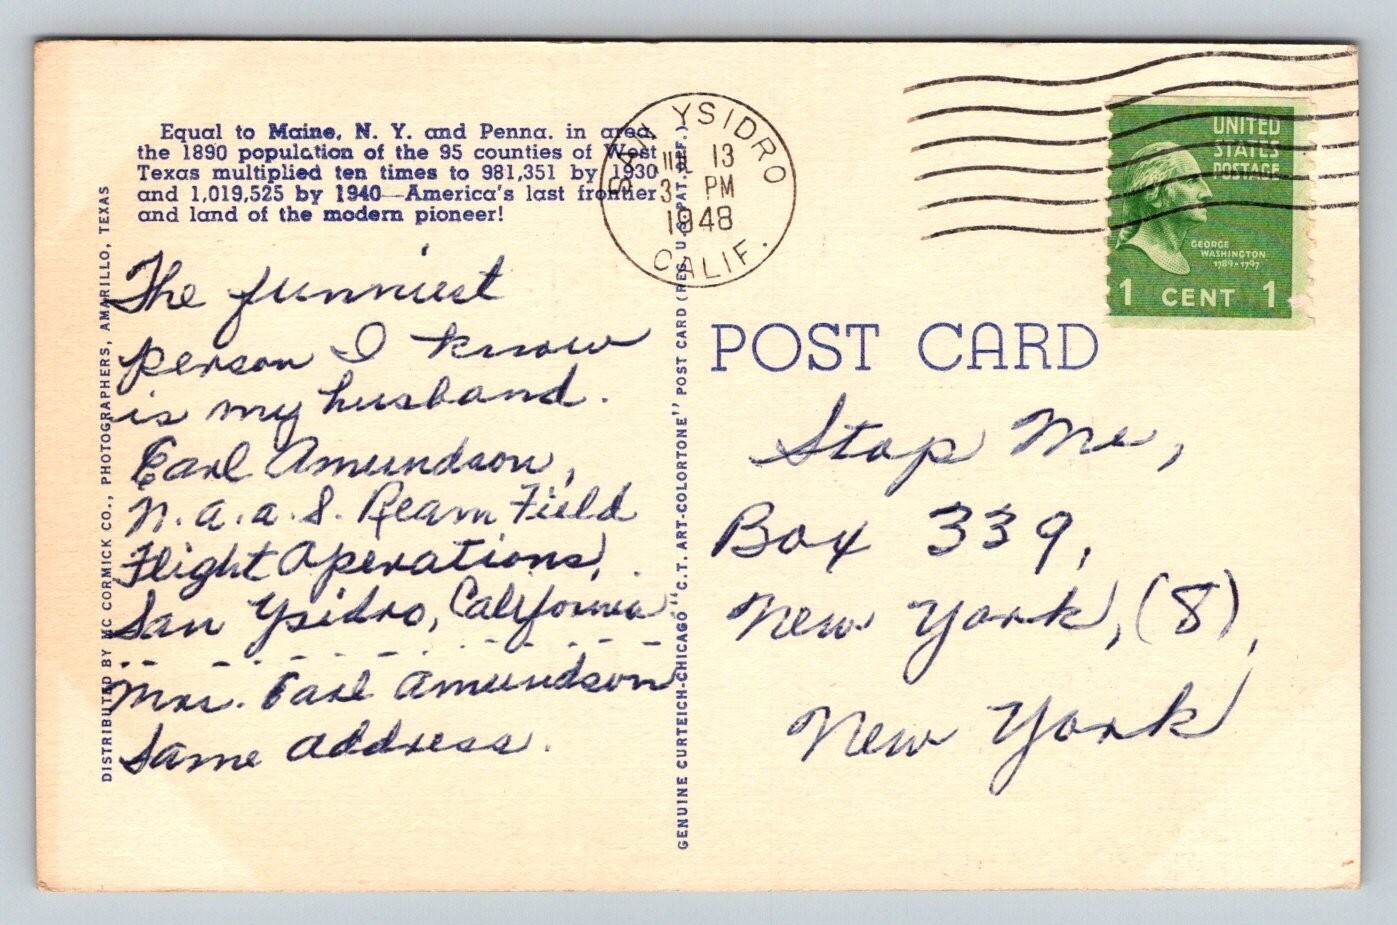 Equal to Maine, N. Y. and Penna. in area,
the 1890 population of the 95 counties of West
Texas multiplied ten times to 981,351 by 1930
and 1,019,525 by 1940—America's last frontier
and land of the modern pioneer!
The funniest
person I know
is my husband.
Earl Amundson,
N.A.A.S. Ream Field
Flight Operations,
San Ysidro, California
Mrs. Earl Amundson
Same address.
DISTRIBUTED BY MC CORMICK CO., PHOTOGRAPHERS, AMARILLO, TEXAS
GENUINE CURTEICH-CHICAGO "C.T. ART-COLORTONE" POST CARD (REG. U.S. PAT. OFF.)
SAN YSIDRO
JUL 13
3 PM
1948
CALIF.
UNITED
STATES
POSTAGE
GEORGE
WASHINGTON
1789-1797
1 CENT 1
POST CARD
Stop Me,
Box 339,
New York, (8),
New York